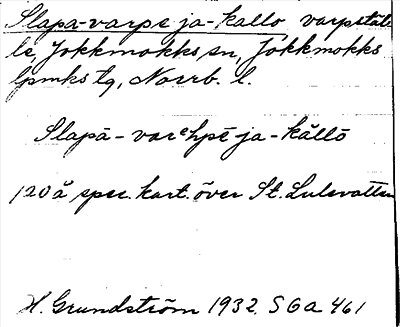 Slapa-varpe ja-kallo varpställe
le, Jokkmokks sn, Jokkmokks
lpmks tg, Norrb. l.
Slapā-varᵉhpē-ja-kållō
120 å spec. kart. över St. Lulevatten
H. Grundström 1932. SOa 461